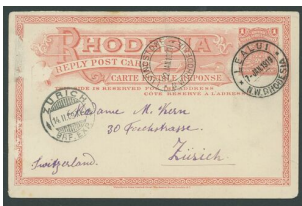 RHODESIA
REPLY POST CARD
CARTE POSTALE RÉPONSE
THIS SIDE IS RESERVED FOR ADDRESS
CÔTÉ RÉSERVÉ A L'ADRESSE
LEALUI
N.W. RHODESIA
ZURICH
BRF. EXP.
Madame M. Kern
Zürich
Switzerland.